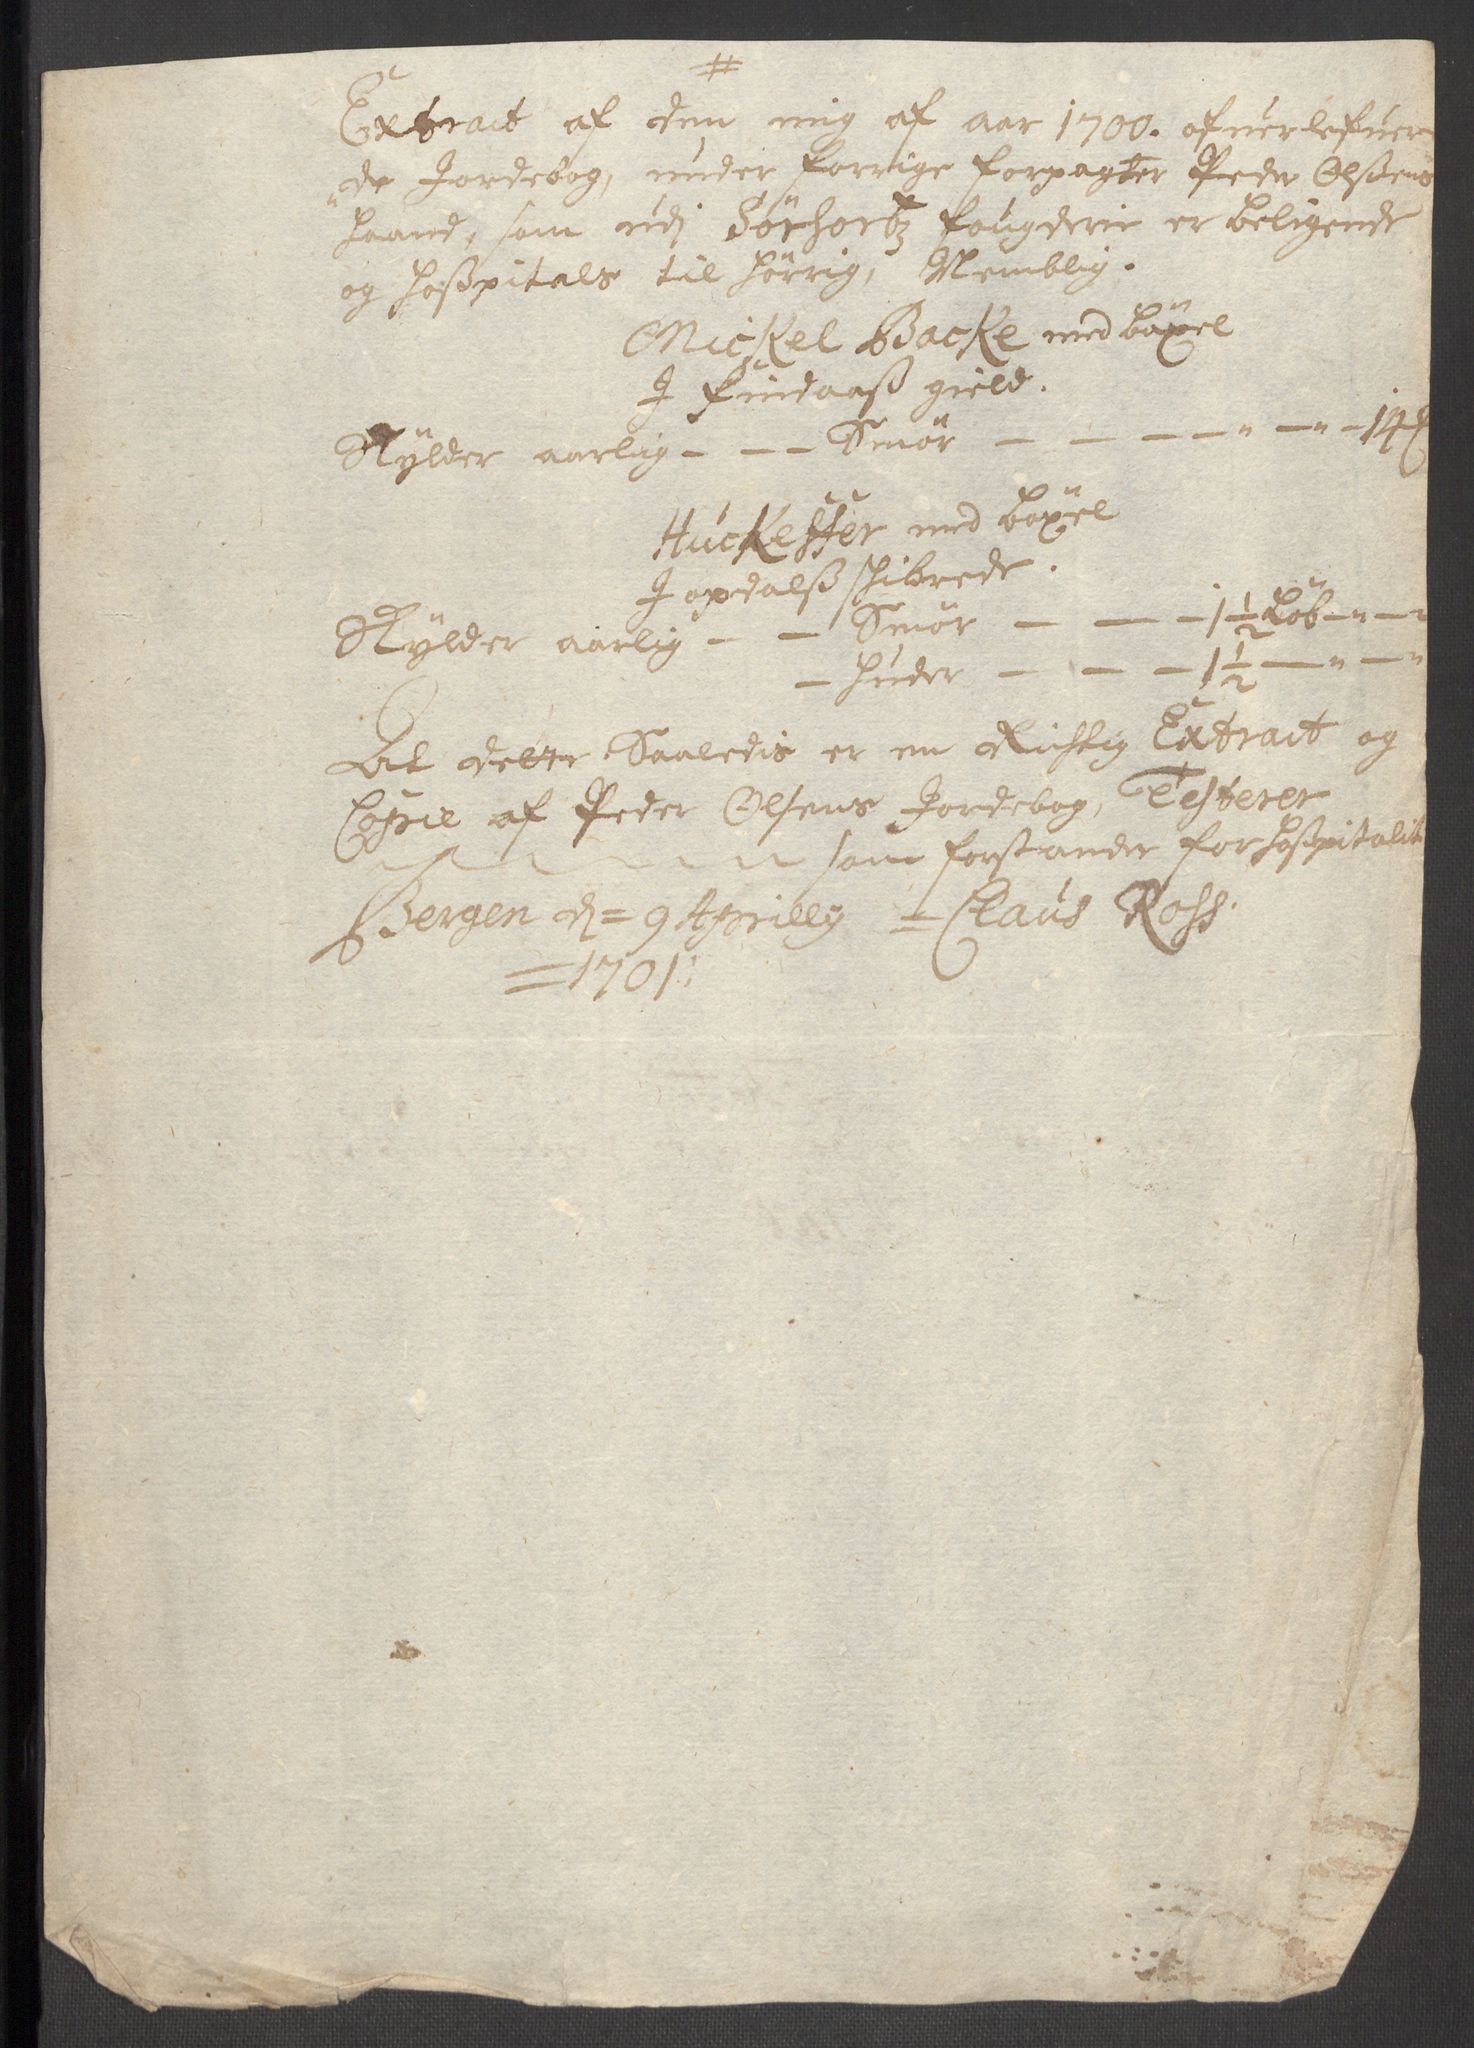 #
Extract af den mig af aar 1700. ofuerlefuer
de Jordebog, under forrige forpagter Peder Olssens
haand, som udj Sörhortz fougderie er beligende
og hosspitals til hörrig, Nemblig.
Mickel Backe med böxel
I findaass gield.
Skylder aarlig — — — Smör — — — — " — " — 14
Huckester med böxel
I opdalss schibrede.
Skylder aarlig — — Smör — — — 1 1/2 Löb — " — "
— huder — — — 1 1/2 — " — "
At dette Saaledis er en Richtig Extract og
Copie af Peder Olsens Jordebog, Testerer
som forstander for hosspitalit
Bergen d= 9 Aprilly = Claus Ross.
= 1701: